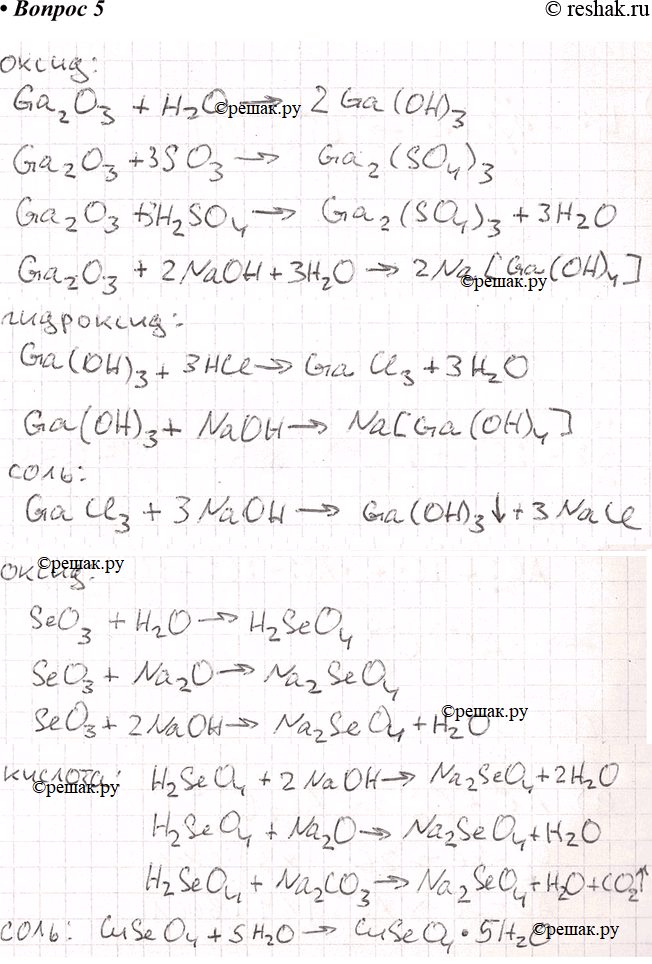 • Вопрос 5
© reshak.ru
оксид:
Ga₂O₃ + H₂O → 2Ga(OH)₃
©решак.ру
Ga₂O₃ + 3SO₃ → Ga₂(SO₄)₃
Ga₂O₃ + 3H₂SO₄ → Ga₂(SO₄)₃ + 3H₂O
Ga₂O₃ + 2NaOH + 3H₂O → 2Na[Ga(OH)₄]
©решак.ру
гидроксид:
Ga(OH)₃ + 3HCl → GaCl₃ + 3H₂O
Ga(OH)₃ + NaOH → Na[Ga(OH)₄]
соль:
GaCl₃ + 3NaOH → Ga(OH)₃↓ + 3NaCl
©решак.ру
оксид:
SeO₃ + H₂O → H₂SeO₄
SeO₃ + Na₂O → Na₂SeO₄
©решак.ру
SeO₃ + 2NaOH → Na₂SeO₄ + H₂O
кислота: H₂SeO₄ + 2NaOH → Na₂SeO₄ + 2H₂O
©решак.ру
H₂SeO₄ + Na₂O → Na₂SeO₄ + H₂O
H₂SeO₄ + Na₂CO₃ → Na₂SeO₄ + H₂O + CO₂↑
соль: CuSeO₄ + 5H₂O → CuSeO₄ • 5H₂O
©решак.ру